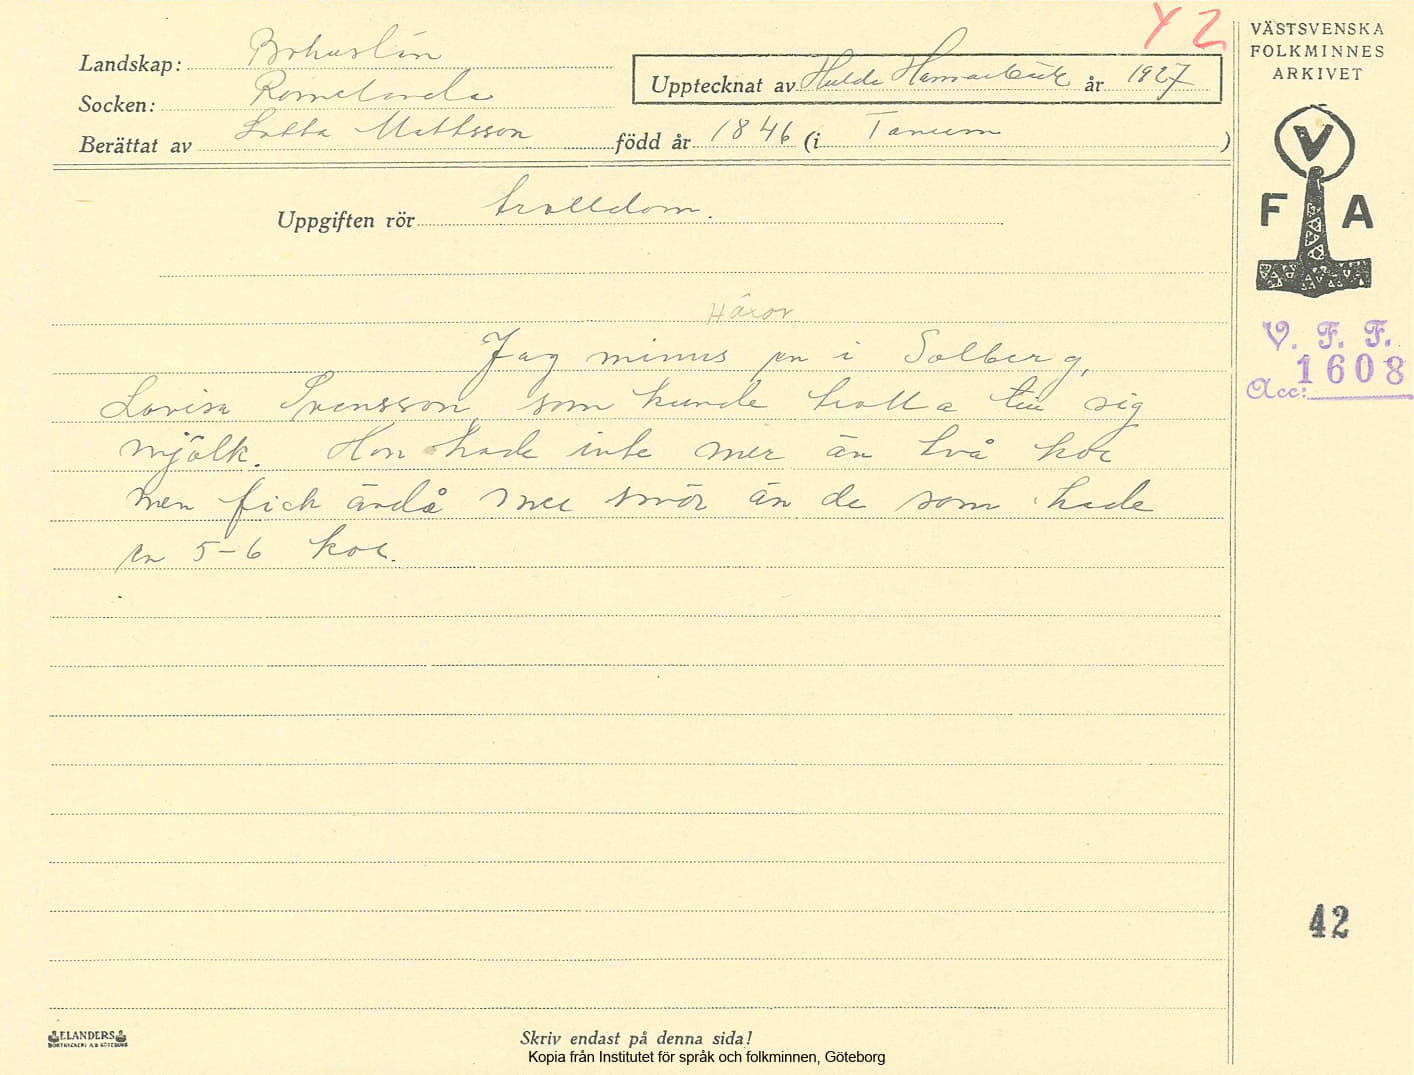 Y 2
VÄSTSVENSKA
FOLKMINNES
ARKIVET
Landskap: Bohuslän
Socken: Romelanda
Upptecknat av Hulda Hammarbäck år 1927
Berättat av Lotta Mattsson född år 1846 (i Tanum)
V
F A
Uppgiften rör trolldom.
Häxor
V. F. F.
Acc: 1608
Jag minns en i Solberg,
Lovisa Svensson, som kunde trolla till sig
mjölk. Hon hade inte mer än två kor
men fick ändå mer smör än de som hade
en 5-6 kor.
42
ELANDERS
BOKTRYCKERI A.B. GÖTEBORG
Skriv endast på denna sida!
Kopia från Institutet för språk och folkminnen, Göteborg